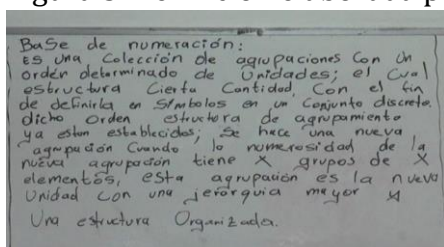 Base de numeración:
Es una Colección de agrupaciones Con Un
orden determinado de Unidades; el Cual
estructura Cierta Cantidad, Con el fin
de definirla en Símbolos en un Conjunto discreto.
dicho Orden estructura de agrupamiento
ya estan establecidos; Se hace una nueva
agrupación Cuando lo numerosidad de la
nueva agrupación tiene X grupos de X
elementos, esta agrupación es la nueva
Unidad Con una jerarquia mayor y
Una estructura Organizada.